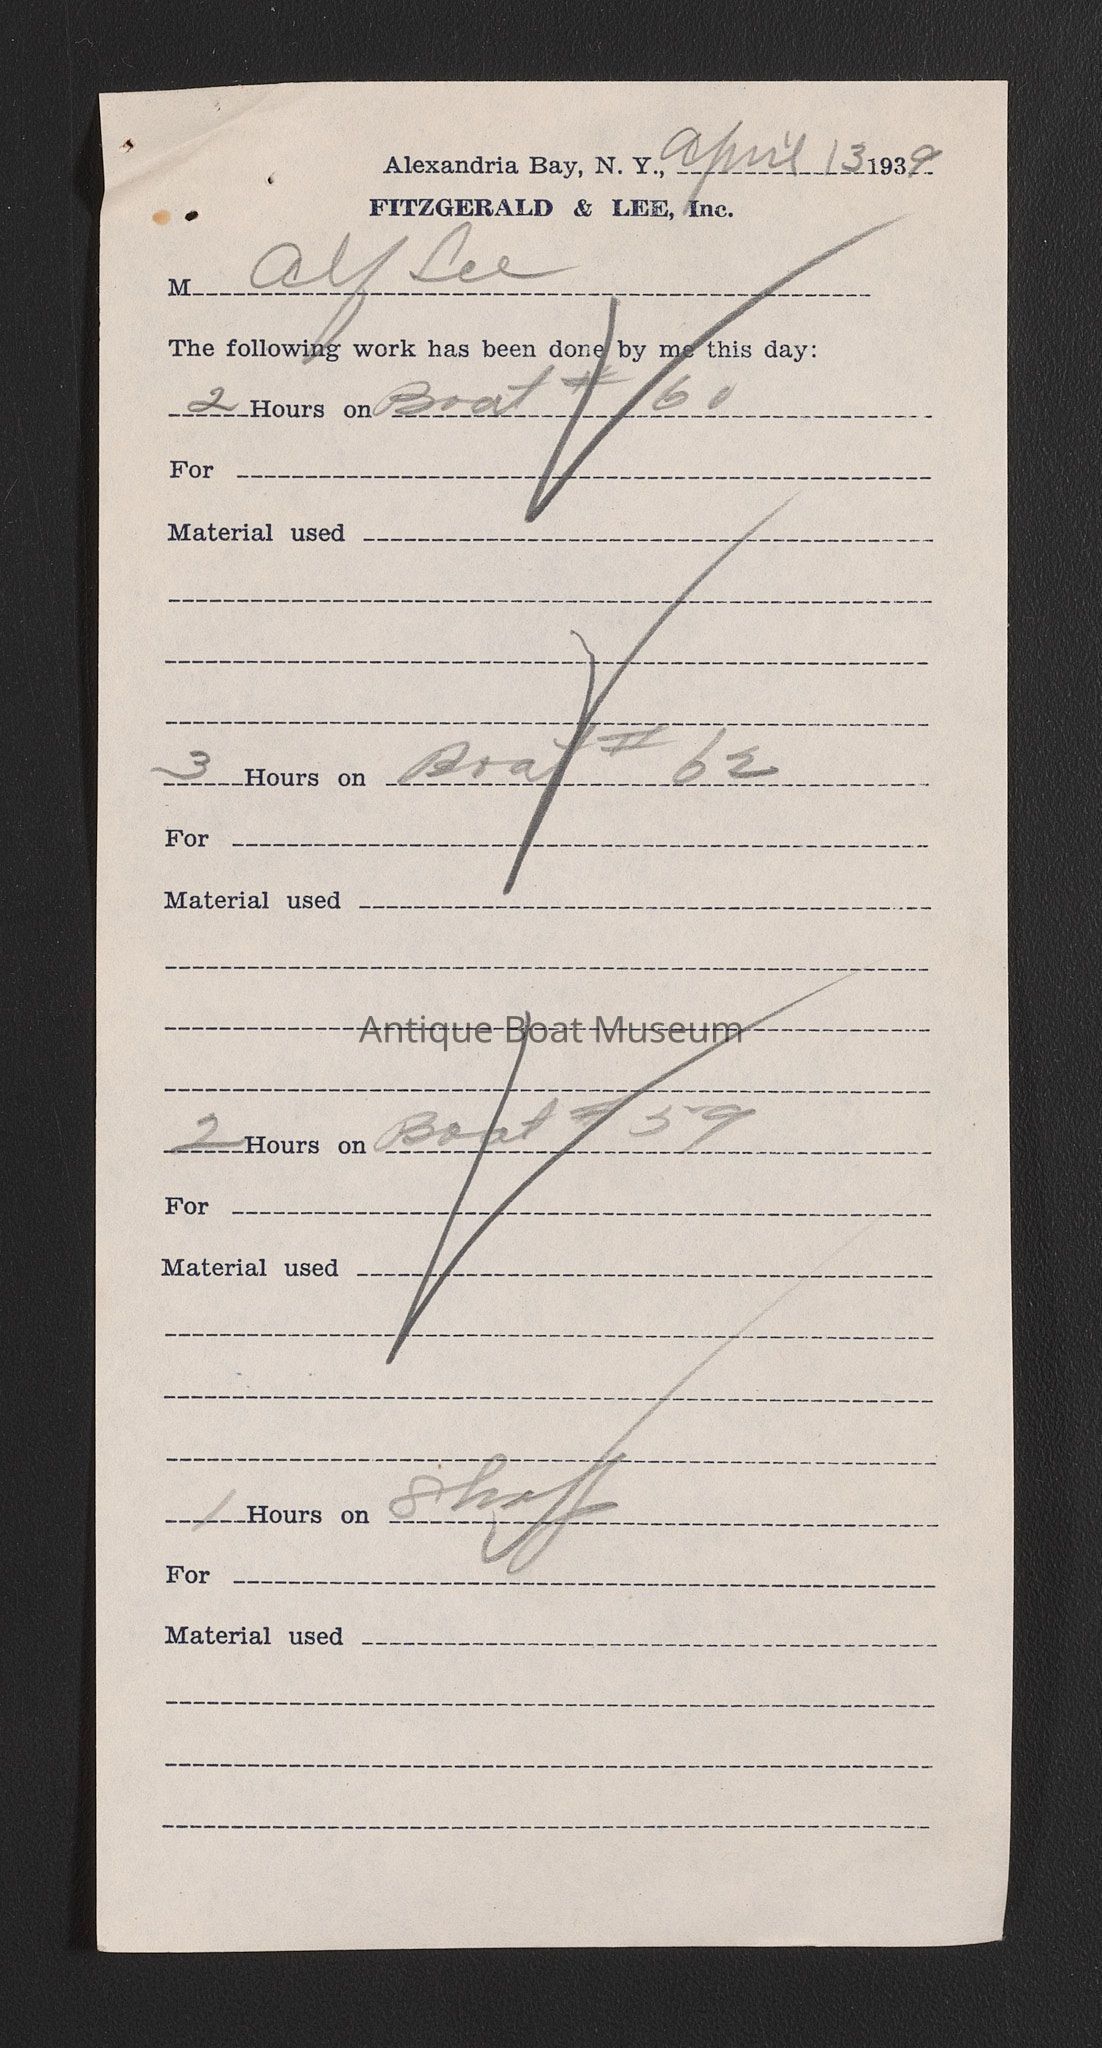 Alexandria Bay, N. Y., April 13 1939
FITZGERALD & LEE, Inc.
M Alf Lee
The following work has been done by me this day:
2 Hours on Boat # 60
For
Material used
3 Hours on Boat # 62
For
Material used
Antique Boat Museum
2 Hours on Boat # 59
For
Material used
1 Hours on Shop
For
Material used